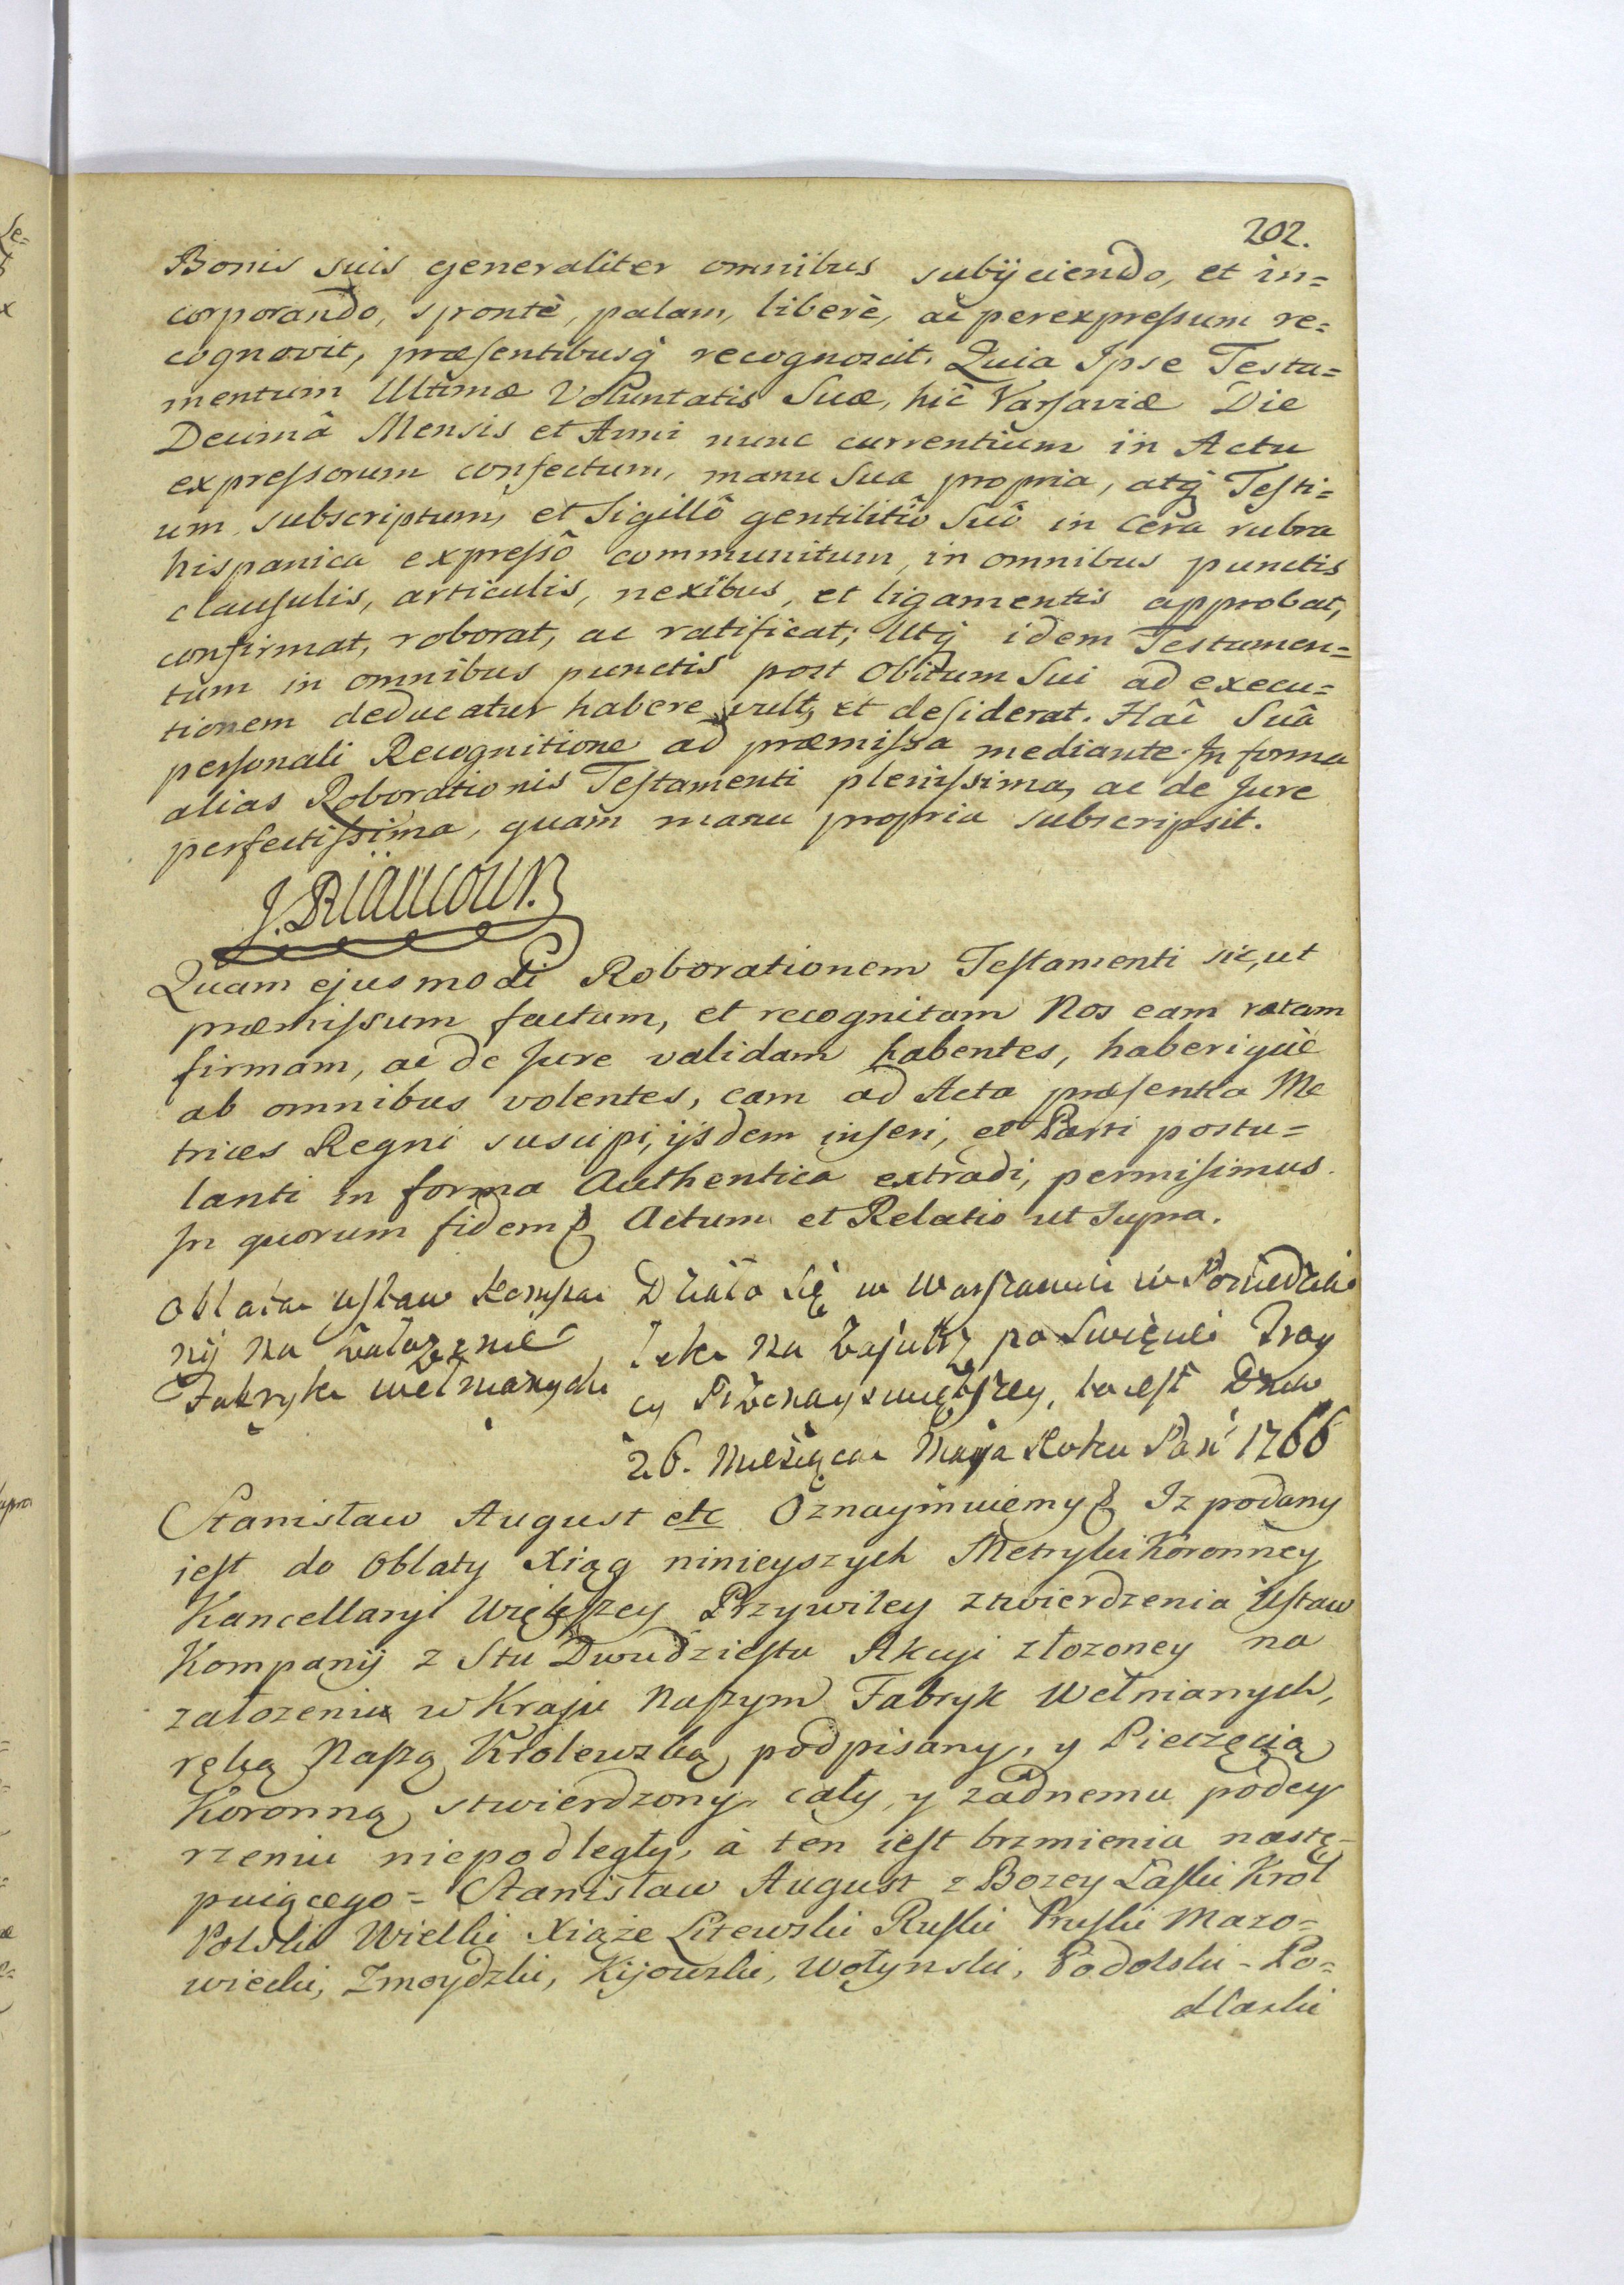 202.
Bonis suis generaliter omnibus subijciendo, et in=
corporando, spontè, palam, liberè, ac perexpressum re=
cognovit, præsentibusq̃ recognoscit. Quia Ipse Testa=
mentum Ultimæ Voluntatis Suæ, hic Varsaviæ Die
Decimâ Mensis et Anni nunc currentium in Actu
expressorum confectum, manu Sua propria, atq̃ Testi=
um subscriptum, et Sigillô gentilitiô Suô in Cera rubra
hispanica expressô communitum, in omnibus punctis
clausulis, articulis, nexibus, et ligamentis approbat,
confirmat, roborat, ac ratificat; Utq̃ idem Testamen=
tum in omnibus punctis post Obitum Sui ad execu=
tionem deducatur habere vult, et desiderat. Hac Suâ
personali Recognitione ad præmissa mediante. In forma
alias Roborationis Testamenti plenissima, ac de Jure
perfectissima, quam manu propria subscripsit.
J. Riaucour.
Quam ejusmodi Roborationem Testamenti sic, ut
præmissum factam, et recognitam Nos eam ratam
firmam, ac de Jure validam habentes, haberiquè
ab omnibus volentes, eam ad Acta præsentia Me
trices Regni suscipi, ijsdem inseri, et Parti postu=
lanti in forma Authentica extradi, permisimus.
In quorum fidem & Actum et Relatio ut Supra.
Oblata Ustaw Kompa
nij na załozenie
Fabryk wełnianych
Działo się w Warszawie w Poniedzia
łek na zajutrz po Swięcie Troy
cy Przenayswiętszey, to iest Dnia
26. Miesiąca Maja Roku Pań 1766
Stanisław August etc Oznaymuiemy & Iz podany
iest do Oblaty Xiąg ninieyszych Metryki Koronney
Kancellaryi Większey Przywiley ztwierdzenia Ustaw
Kompanij z Stu Dwudziestu Akcyi złozoney na
załozeniu w Kraju Naszym Fabryk Wełnianych,
ręką Naszą Krolewską podpisany, y Pieczęcią
Koronną stwierdzony, cały, y zadnemu podey
rzeniu niepodległy, à ten iest brzmienia nastę-
puiącego = Stanisław August z Bozey Łaski Krol
Polski Wielki Xiąże Litewski Ruski Pruski Mazo=
wiecki, Zmoydzki, Kijowski, Wołynski, Podolski - Po=
dlaski